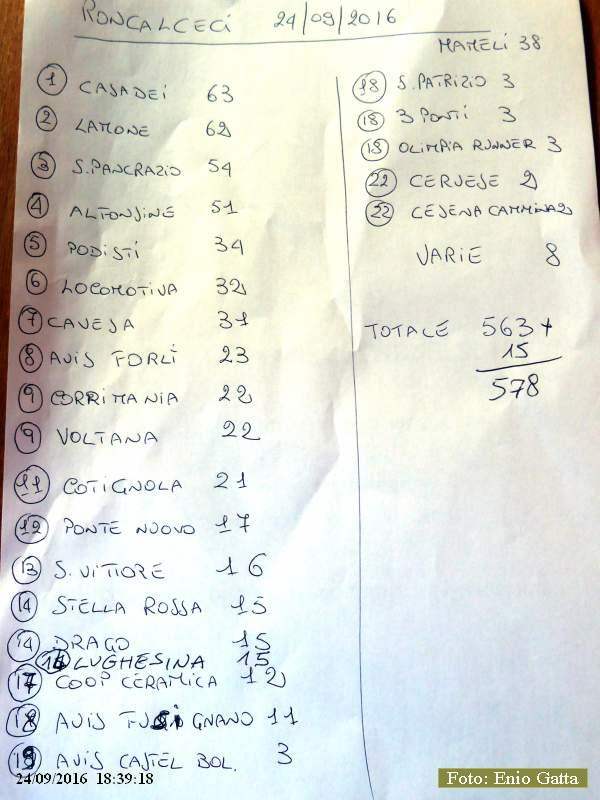 RONCALCECI 24/09/2016
MAMELI 38
1 CASADEI 63
2 LAMONE 62
3 S.PANCRAZIO 54
4 ALFONSINE 51
5 PODISTI 34
6 LOCOMOTIVA 32
7 CAVEJA 31
8 AVIS FORLÌ 23
9 CORRIMANIA 22
9 VOLTANA 22
11 COTIGNOLA 21
12 PONTE NUOVO 17
13 S.VITTORE 16
14 STELLA ROSSA 15
14 DRAGO 15
14 LUGHESINA 15
17 COOP CERAMICA 12
18 AVIS FUSIGNANO 11
19 AVIS CASTEL BOL. 3
18 S.PATRIZIO 3
18 3 PONTI 3
18 OLIMPIA RUNNER 3
22 CERVESE 2
22 CESENA CAMMINA 2
VARIE 8
TOTALE 563+
15
578
24/09/2016 18:39:18
Foto: Enio Gatta